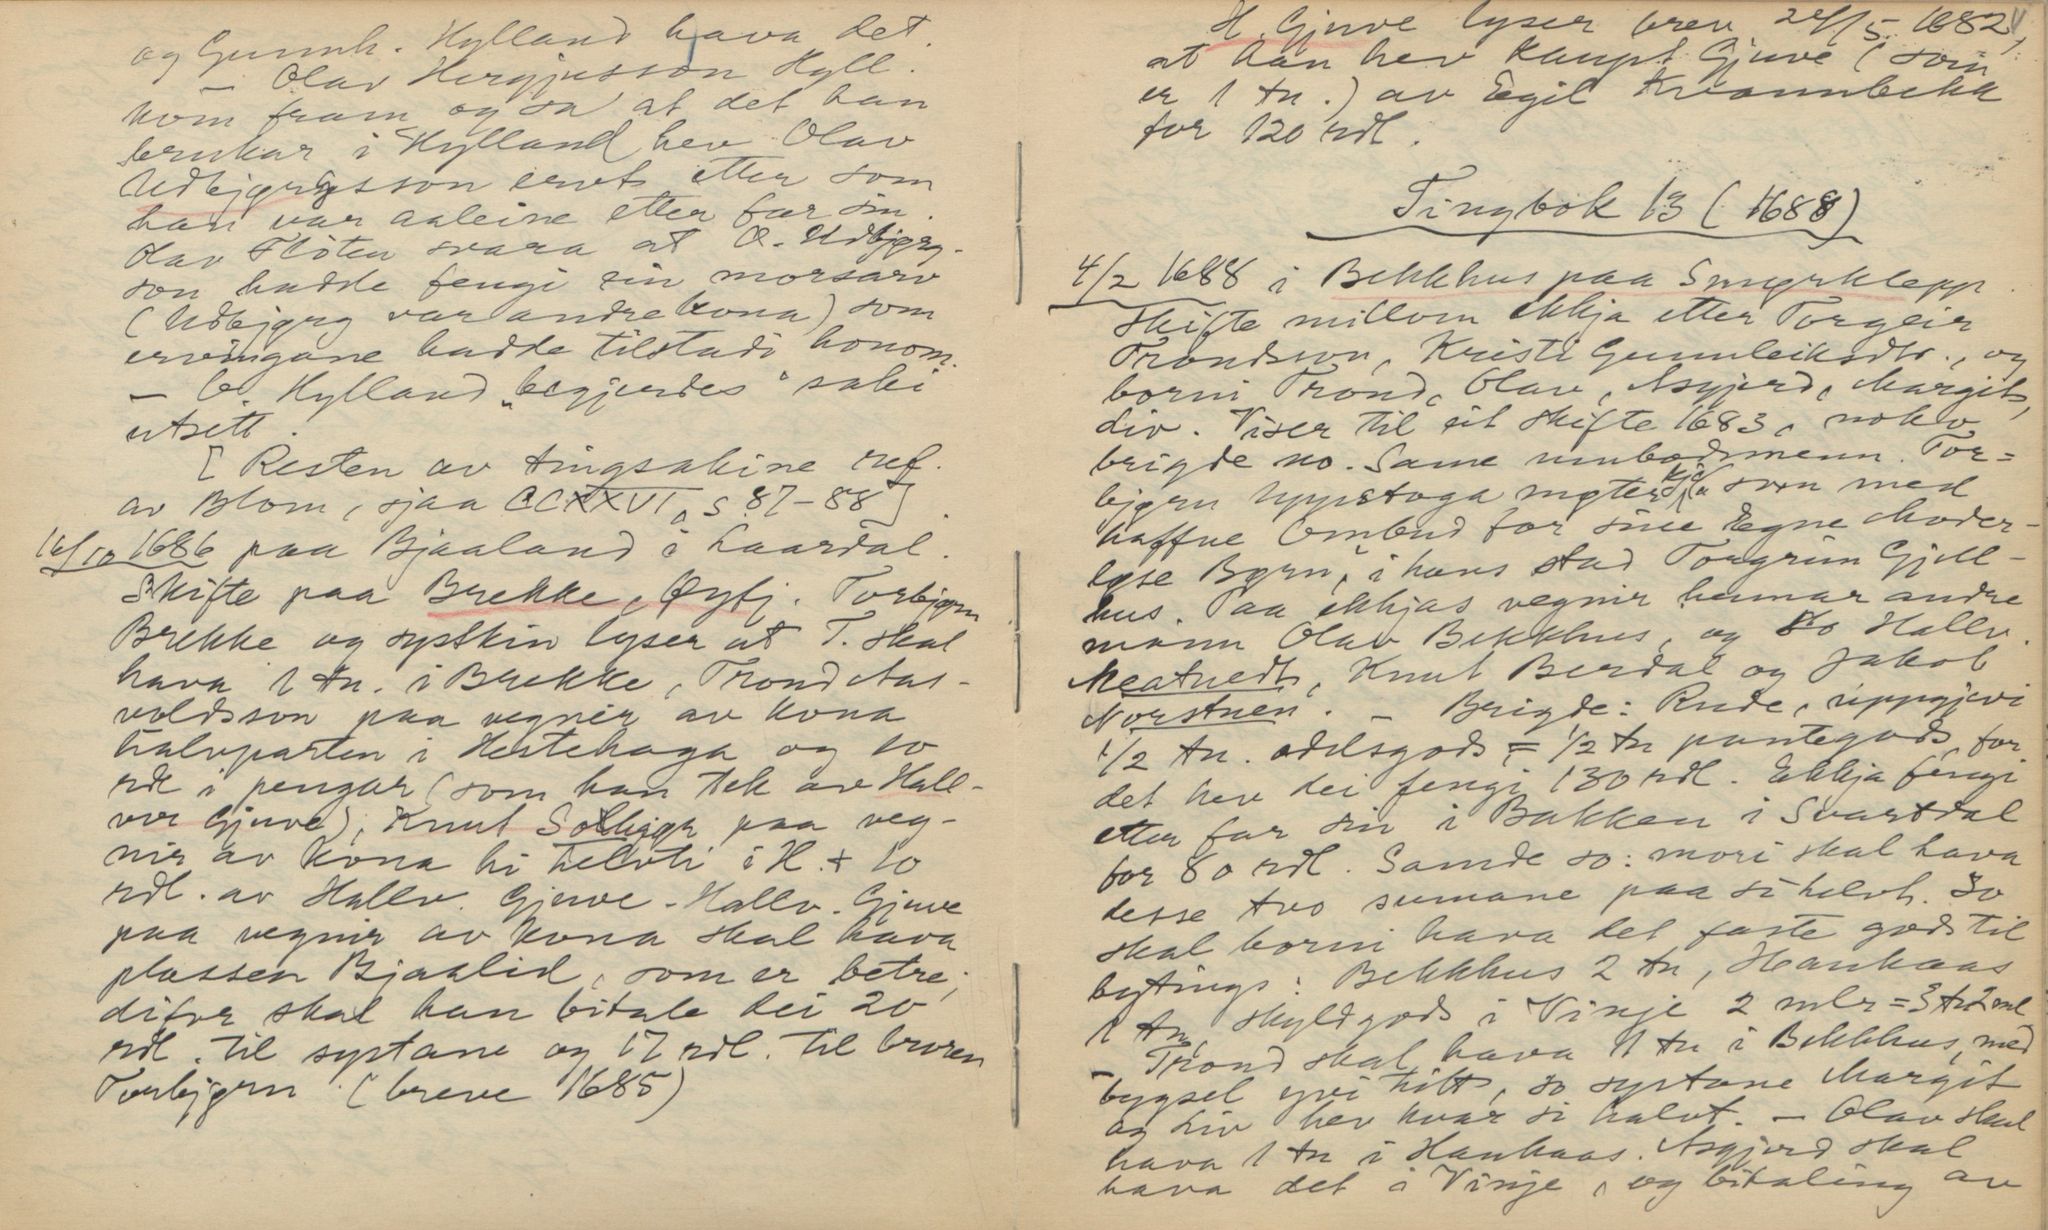 og Gunnh. Hylland hava det.
– Olav Hergjusson Hyll.
kom fram og sa at det han
brukar i Hylland hev Olav
Udbjørgsson ervt etter som
han var aaleine etter far sin.
Olav Flöten svara at O. Udbjørg-
son hadde fengi sin morsarv
(Udbjørg var andre kona) som
ervingane hadde tilstadi honom.
– O. Hylland „begjerdes" saki
utsett.
[Resten av tingsakine ref.
av Blom, sjaa CCXXVI, s. 87–88].
16/10 1686 paa Bjaaland i Laardal.
Skifte paa Brekke, Øyfj. Torbjørn
Brekke og syskin lyser at T. skal
hava 1 tn. i Brekke, Trond Aas-
voldsson paa vegnir av kona
halvparten i Hestehaga og 10
rdl i pengar (som han tek av Hall-
vor Gjuve), Knut paa veg-
nir av kona hi helvti i H. + 10
rdl. av Hallv. Gjuve. Hallv. Gjuve
paa vegnir av kona skal hava
plassen Bjaalid, som er betre;
difor skal han bitala dei 20
rdl. til systane og 17 rdl. til broren
Torbjørn (breve 1685)
H. Gjuve lyser brev 24/5 1682,
at han hev kaupt Gjuve (som
er 1 tn.) av Egil Kvannbekk
for 120 rdl.
Tingbok 13 (1688)
4/2 1688 i Bekkhus paa Smørklepp.
Skifte millom ekkja etter Torgeir
Trondsson, Kristi Gunnleiksdtr., og
borni Trond, Olav, Asgjerd, Margit,
Liv. Viser til eit skifte 1683, nokv
brigde no. Same umbodsmenn. Tor=
bjørn Uppistoga møter ikkje „som med
haffve Ombud for sine Egne Moder-
løse Børn", i hans stad Torgrim Gjell-
hus. Paa ekkjas vegnir hennar andre
mann Olav Bekkhus, og so Hallv.
Meatvedt, Knut Berdal og Jakob
Norstuen. – Brigde: Rude, uppgjevi
1/2 tn. odelsgods = 1/2 tn pantegods, for
det hev dei fengi 130 rdl. Ekkja fengi
etter far sin i Bakken i Svartdal
for 80 rdl. Samde so: mori skal hava
desse tvo sumane paa si helvt. So
skal borni hava det faste gods til
bytings: Bekkhus 2 tn, Haukaas
1 tn, skyldgods i Vinje 2 mlr = 3 tn 2 ml
– Trond skal hava 1 tn i Bekkhus, med
bygsel yvi hitt, so systane Margit
og Liv hev kvar si halvt. – Olav skal
hava 1 tn i Haukaas. Asgjerd skal
hava det i Vinje, og bitaling av